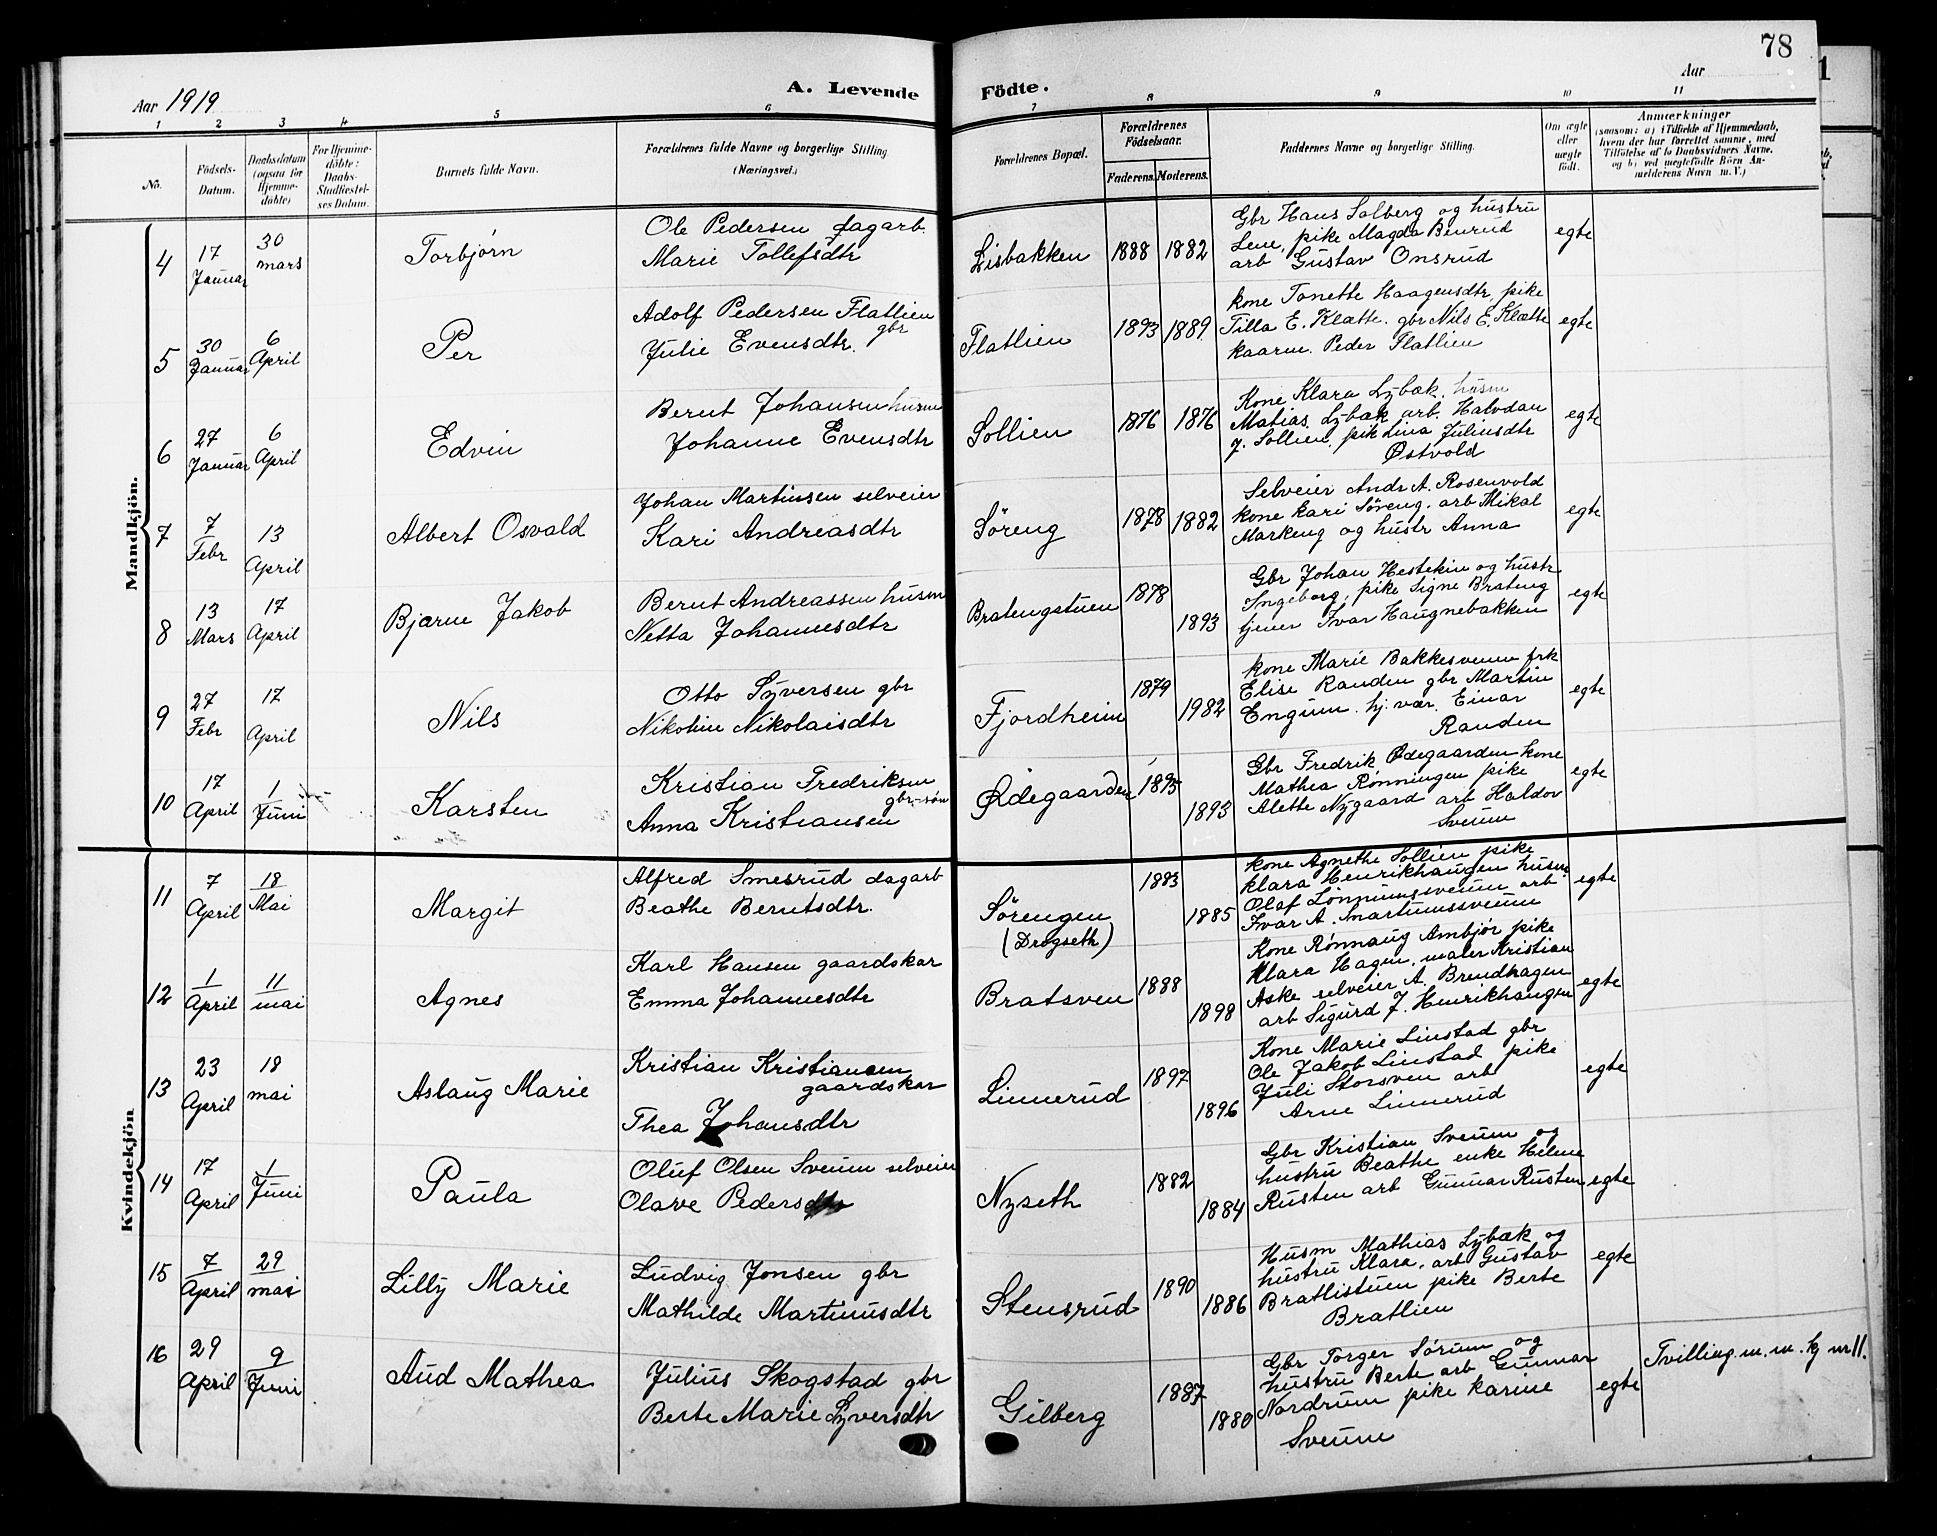 78
Aar 1919
A. Levende Födte.
Aar
1 2 3 4 5 6 7 8 9 10 11
No.
Födsels-
Datum.
Daabsdatum
(ogsaa for
Hjemme-
döbte)
For Hjemme-
döbte:
Daabs-
Stadfæstel-
ses Datum.
Barnets fulde Navn.
Forældrenes fulde Navne og borgerlige Stilling
(Næringsvei.)
Forældrenes Bopæl.
Forældrenes
Födselsaar.
Faderens. Moderens.
Faddernes Navne og borgerlige Stilling.
Om ægte
eller
uægte
födt.
Anmærkninger
(saasom: a) i Tilfælde af Hjemmedaab,
hvem der har forrettet samme, med
Tilföielse af to Daabsvidners Navne.
og b) ved uægtefödte Börn An-
melderens Navn m. V.)
Mandkjön.
4
17
Januar
30
mars
Torbjørn
Ole Pedersen dagarb.
Marie Tollefsdtr
Lisbakken
1888 1882
Gbr Hans Solberg og hustru
Lene, pike Magda Benrud
arb Gustav Onsrud
egte
5
30
Januar
6
April
Per
Adolf Pedersen Flatlien
gbr
Julie Evensdtr.
Flatlien
1893 1889
kone Tonette Haagensdtr, pike
Tilla E. Klætte. gbr Nils E. Klætte
kaarm. Peder Flatlien
egte
6
27
Januar
6
April
Edvin
Bernt Johansen husm
Johanne Evensdtr
Sollien
1876 1876
Kone Klara Lybæk, husm
Matias Lybæk arb. Halvdan
J. Sollien, pik Lina Juliusdtr
Østvold
egte
7
7
Febr
13
April
Albert Osvald
Johan Martinsen selveier
Kari Andreasdtr
Søreng
1878 1882
Selveier Andr A. Rosenvold
kone Kari Søreng, arb Mikal
Markeng og hustr Anna
egte
8
13
Mars
17
April
Bjarne Jakob
Bernt Andreassen husm
Netta Johannesdtr
Bratengstuen
1878
1893
Gbr Johan Hestekin og hustr
Ingeborg, pike Signe Brateng
tjener Ivar Haugnebakken
egte
9
27
Febr
17
April
Nils
Otto Syversen gbr
Nikoline Nikolaisdtr
Fjordheim
1879
1982
kone Marie Bakkesveum frk
Elise Randen gbr Martin
Engum. hj. vær. Einar
Randen
egte
10
17
April
1
Juni
Karsten
Kristian Fredriksen
gbr-søn
Anna Kristiansen
Ødegaarden
1895
1893
Gbr Fredrik Ødegaarden kone
Mathea Rønningen pike
Alette Nygaard arb Haldor
Sveum
egte
Kvindekjön
11
7
April
18
Mai
Margit
Alfred Smesrud dagarb
Beathe Berntsdtr.
Sørengen
(Drogseth)
1883
1885
kone Agnethe Sollien pike
Klara Henrikhaugen husm
Olaf Lønnumsveum arb
Ivar A. Smartumsveum
egte
12
1
April
11
mai
Agnes
Karl Hansen gaardskar
Emma Johannesdtr
Bratsven
1888
1898
Kone Rønnaug Ambjør pike
Klara Hagen, maler Kristian
Aske selveier A. Brendhagen
arb Sigurd J. Henrikhaugen
egte
13
23
April
18
mai
Aslaug Marie
Kristian Kristiansen
gaardskar
Thea Johansdtr
Linnerud
1897
1896
Kone Marie Linstad gbr
Ole Jakob Linstad pike
Juli Storsven arb
Arne Linnerud
egte
14
17
April
1
Juni
Paula
Oluf Olsen Sveum selveier
Olave Pedersdtr
Nyseth
1882
1884
Gbr Kristian Sveum og
hustru Beathe, enke Helene
Rusten arb Gunnar Rusten
egte
15
7
April
29
mai
Lilly Marie
Ludvig Jonsen gbr
Mathilde Martinusdtr
Stensrud
1890
1886
Husm Mathias Lybæk og
hustru Klara, arb Gustav
Bratlistuen pike Berte
Bratlien
egte
16
29
April
9
Juni
Aud Mathea
Julius Skogstad gbr
Berte Marie Syversdtr
Gilberg
1887
1880
Gbr Torger Sørum og
hustru Berte arb Gunnar
Nordrum pike Karine
Sveum
egte
Tvilling. m. m. kj nr 11.